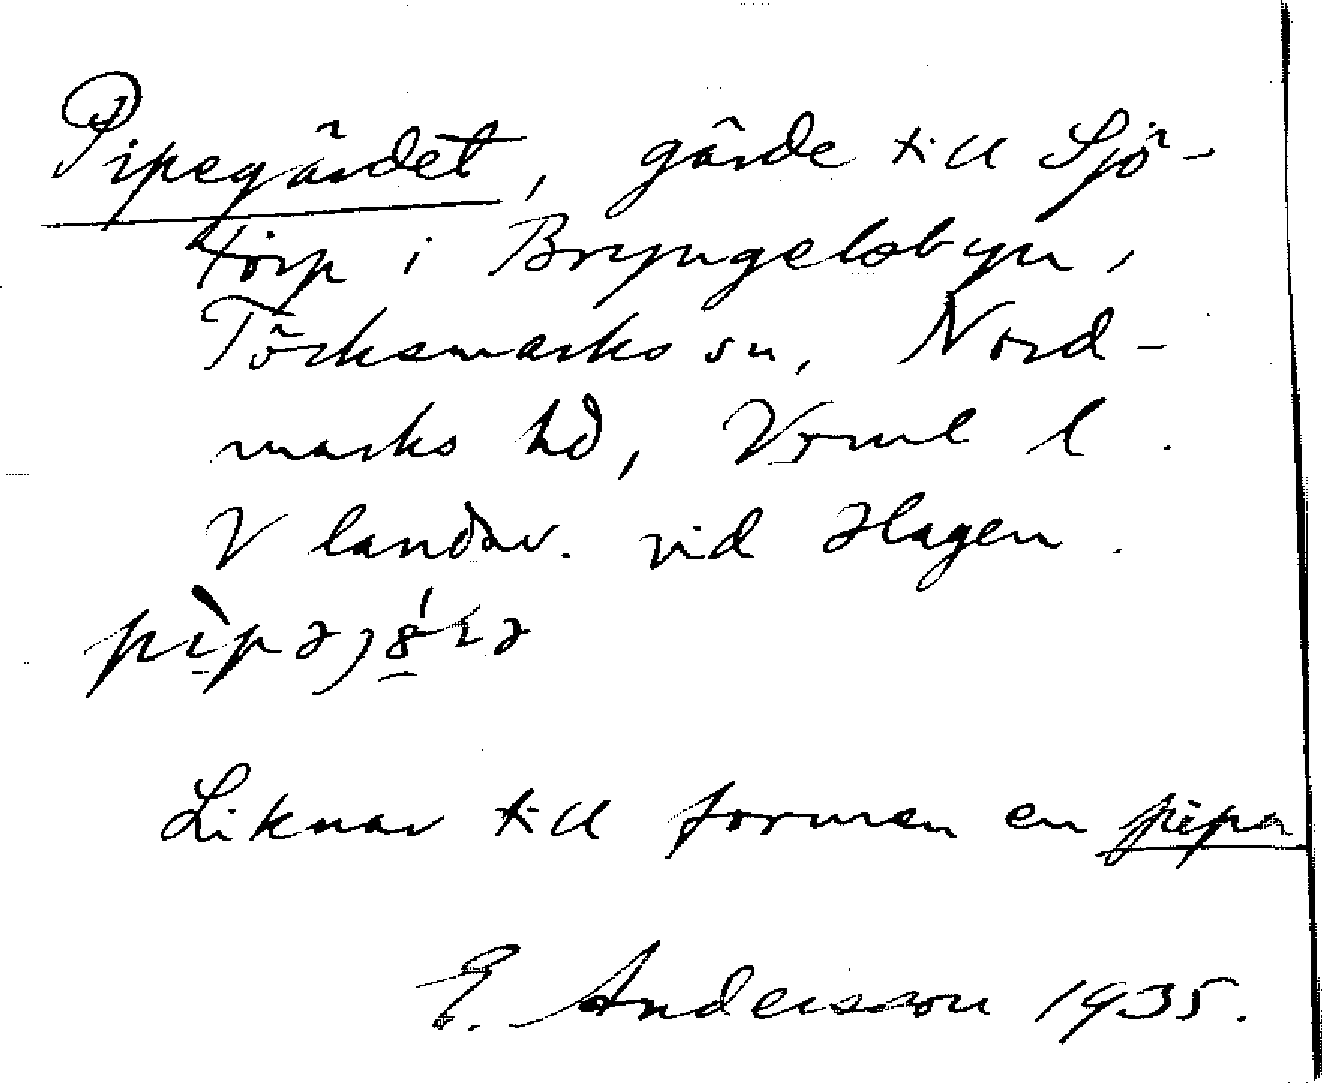 Pipegärdet, gärde till Sjö-
torp i Bryngelsbyn,
Töcksmarks sn, Nord-
marks hd, Värml l.
V landsv. vid Hagen.
Liknar till formen en pipa
E. Andersson 1935.